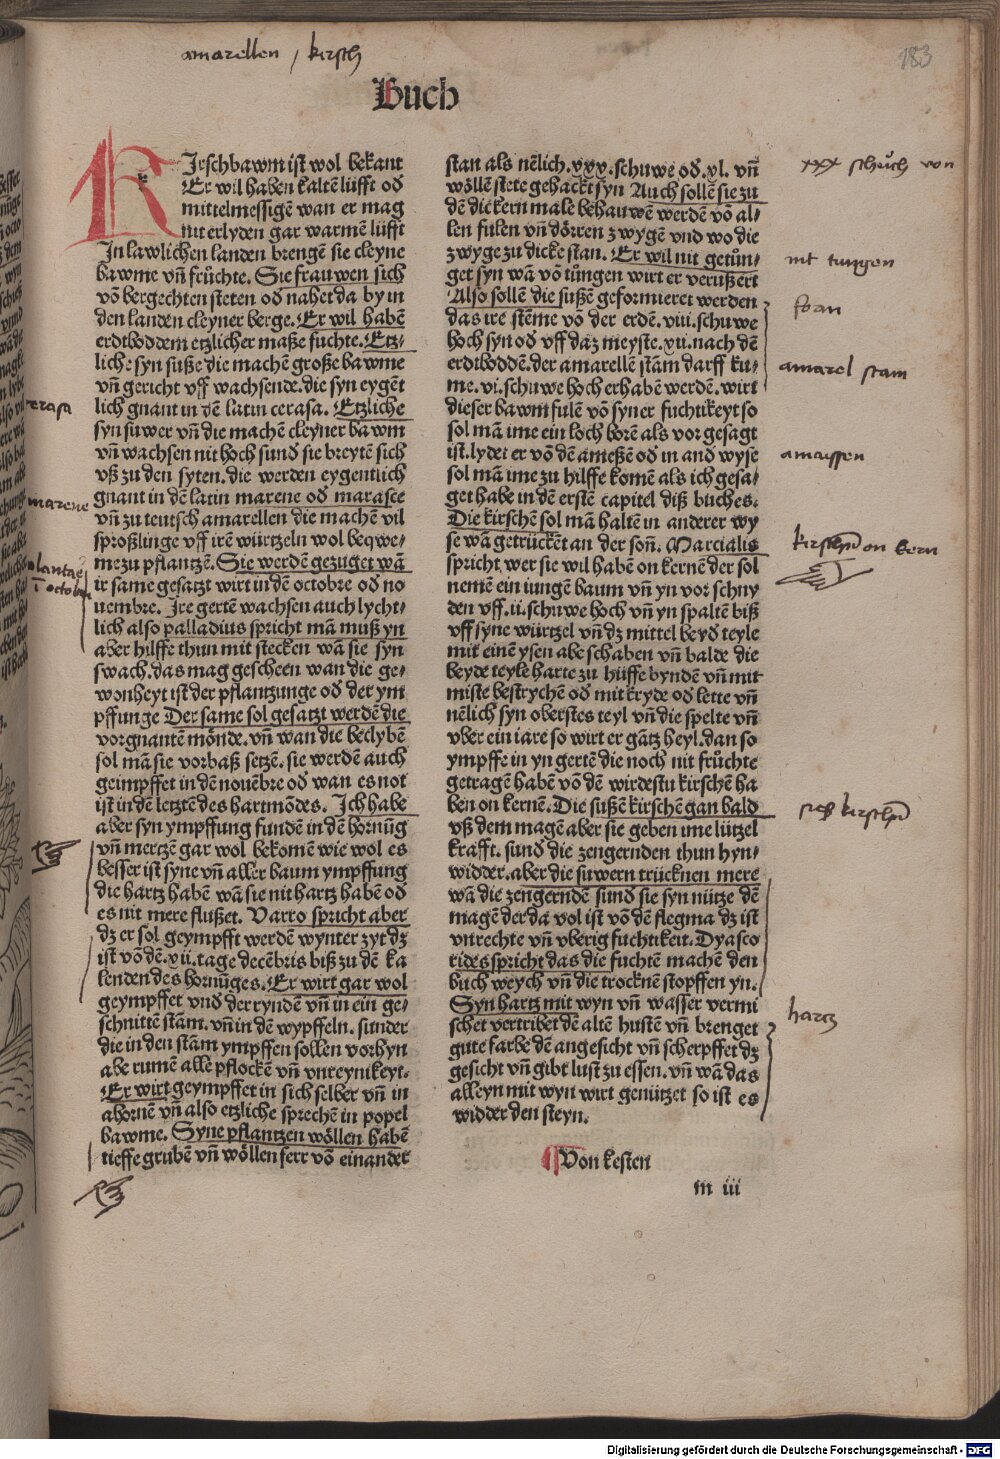 amarellen / kirsch
183
Buch
KIrschbawm ist wol bekant
Er wil haben kaltē lüfft od̄
mittelmessigē wan er mag
nit erlyden gar warmē lüfft
In lawlichen landen brengē sie cleyne
bawme vn̄ frůchte. Sie frauwen sich
vō bergechten steten od̄ nahet da by in
den landen cleyner berge. Er wil habē
erdtboddem etzlicher maße fuchte. Etz-
liche syn suße die machē große bawme
vn̄ gericht vff wachsende. die syn eygēt
lich gnant in dē latin cerasa. Etzliche
syn suwer vn̄ die machē cleyner bawm
vn̄ wachsen nit hoch sund̄ sie breytē sich
vß zu den syten. die werden eygentlich
gnant in dē latin marene od̄ marasce
vn̄ zu teutsch amarellen die machē vil
sproßlinge vff irē würtzeln wol beqwe-
me zu pflantzē. Sie werdē gezuget wā
ir same gesatzt wirt in dē octobre od̄ no
uembre. Ire gertē wachsen auch lycht-
lich also palladius spricht mā muß yn
aber hilffe thun mit stecken wā sie syn
swach. das mag gescheen wan die ge-
wonheyt ist der pflantzunge od̄ der ym
pffunge Der same sol gesatzt werdē die
vorgnantē mōnde. vn̄ wan die beclybē
sol mā sie vorbaß setzē. sie werdē auch
geimpffet in dē nouēbre od̄ wan es not
ist in dē letztē des hartmōdes. Ich habe
aber syn ympffung fundē in dē hornūg
vn̄ mertzē gar wol bekomē wie wol es
besser ist syne vn̄ aller baum ympffung
die hartz habē wā sie nit hartz habē od̄
es nit mere flußet. Varro spricht aber
dz er sol geympfft werdē wynter zyt dz
ist vō dē .xii. tage decēbris biß zu dē ka
lenden des hornūges. Er wirt gar wol
geympffet vnd̄ der ryndē vn̄ in ein ge-
schnittē stām. vn̄ in dē wypffeln. sunder
die in den stām ympffen sollen vorhyn
abe rumē alle pflockē vn̄ vnreynikeyt.
Er wirt geympffet in sich selber vn̄ in
ahornē vn̄ also etzliche sprechē in popel
bawme. Syne pflantzen wöllen habē
tieffe grubē vn̄ wöllen ferr vō einander
stan als nēlich .xxx. schuwe od̄ .xl. vn̄
wöllē stete gehackt syn Auch sollē sie zu
dē dickern male behauwē werdē vō al-
len fulen vn̄ dörren zwygē vnd wo die
zwyge zu dicke stan. Er wil nit getůn-
get syn wā vō tüngen wirt er verußert
Also sollē die sußē geformieret werden
das ire stēme vō der erdē .viii. schuwe
hoch syn od̄ vff daz meyste .xii. nach dē
erdtboddē. der amarellē stām darff ku-
me .vi. schuwe hoch erhabē werdē. wirt
dieser bawm fulē vō syner fuchtikeyt so
sol mā ime ein loch borē als vor gesagt
ist. lydet er vō dē ameßē od̄ in and wyse
sol mā ime zu hilffe komē als ich gesa-
get habe in dē erstē capitel diß buches.
Die kirschē sol mā haltē in anderer wy
se wā getrückēt an der soñ. Marcialis
spricht wer sie wil habē on kernē der sol
nemē ein iungē baum vn̄ yn vor schny
den vff .ii. schuwe hoch vn̄ yn spaltē biß
vff syne würtzel vn̄ dz mittel beyd̄ teyle
mit einē ysen abe schaben vn̄ balde die
beyde teyle harte zu hüffe byndē vn̄ mit
miste bestrychē od̄ mit kryde od̄ lette vn̄
nēlich syn oberstes teyl vn̄ die spelte vn̄
vber ein iare so wirt er gātz heyl. dan so
ympffe in yn gertē die noch nit frůchte
getragē habē vō dē wirdestu kirschē ha
ben on kernē. Die sußē kirschē gan bald
vß dem magē aber sie geben ime lützel
krafft. sund̄ die zengernden thun hyn-
widder. aber die suwern trücknen mere
wā die zengerndē sund̄ sie syn nütze dē
magē der da vol ist vō dē flegma dz ist
vnrechte vn̄ vberig fuchtikeit. Dyasco
rides spricht das die fuchtē machē den
buch weych vn̄ die trocknē stopffen yn.
Syn hartz mit wyn vn̄ wasser vermi
schet vertribet dē altē hustē vn̄ brenget
gute farbe dē angesicht vn̄ scherpffet dz
gesicht vn̄ gibt lust zu essen. vn̄ wā das
alleyn mit wyn wirt genützet so ist es
widder den steyn.
Von kesten
m iii
cerasa
marene
xxx schůch von
nit tungen
amarel stam
amaissen
kirschen on kern
sieß kirschen
hartz
Digitalisierung gefördert durch die Deutsche Forschungsgemeinschaft - DFG